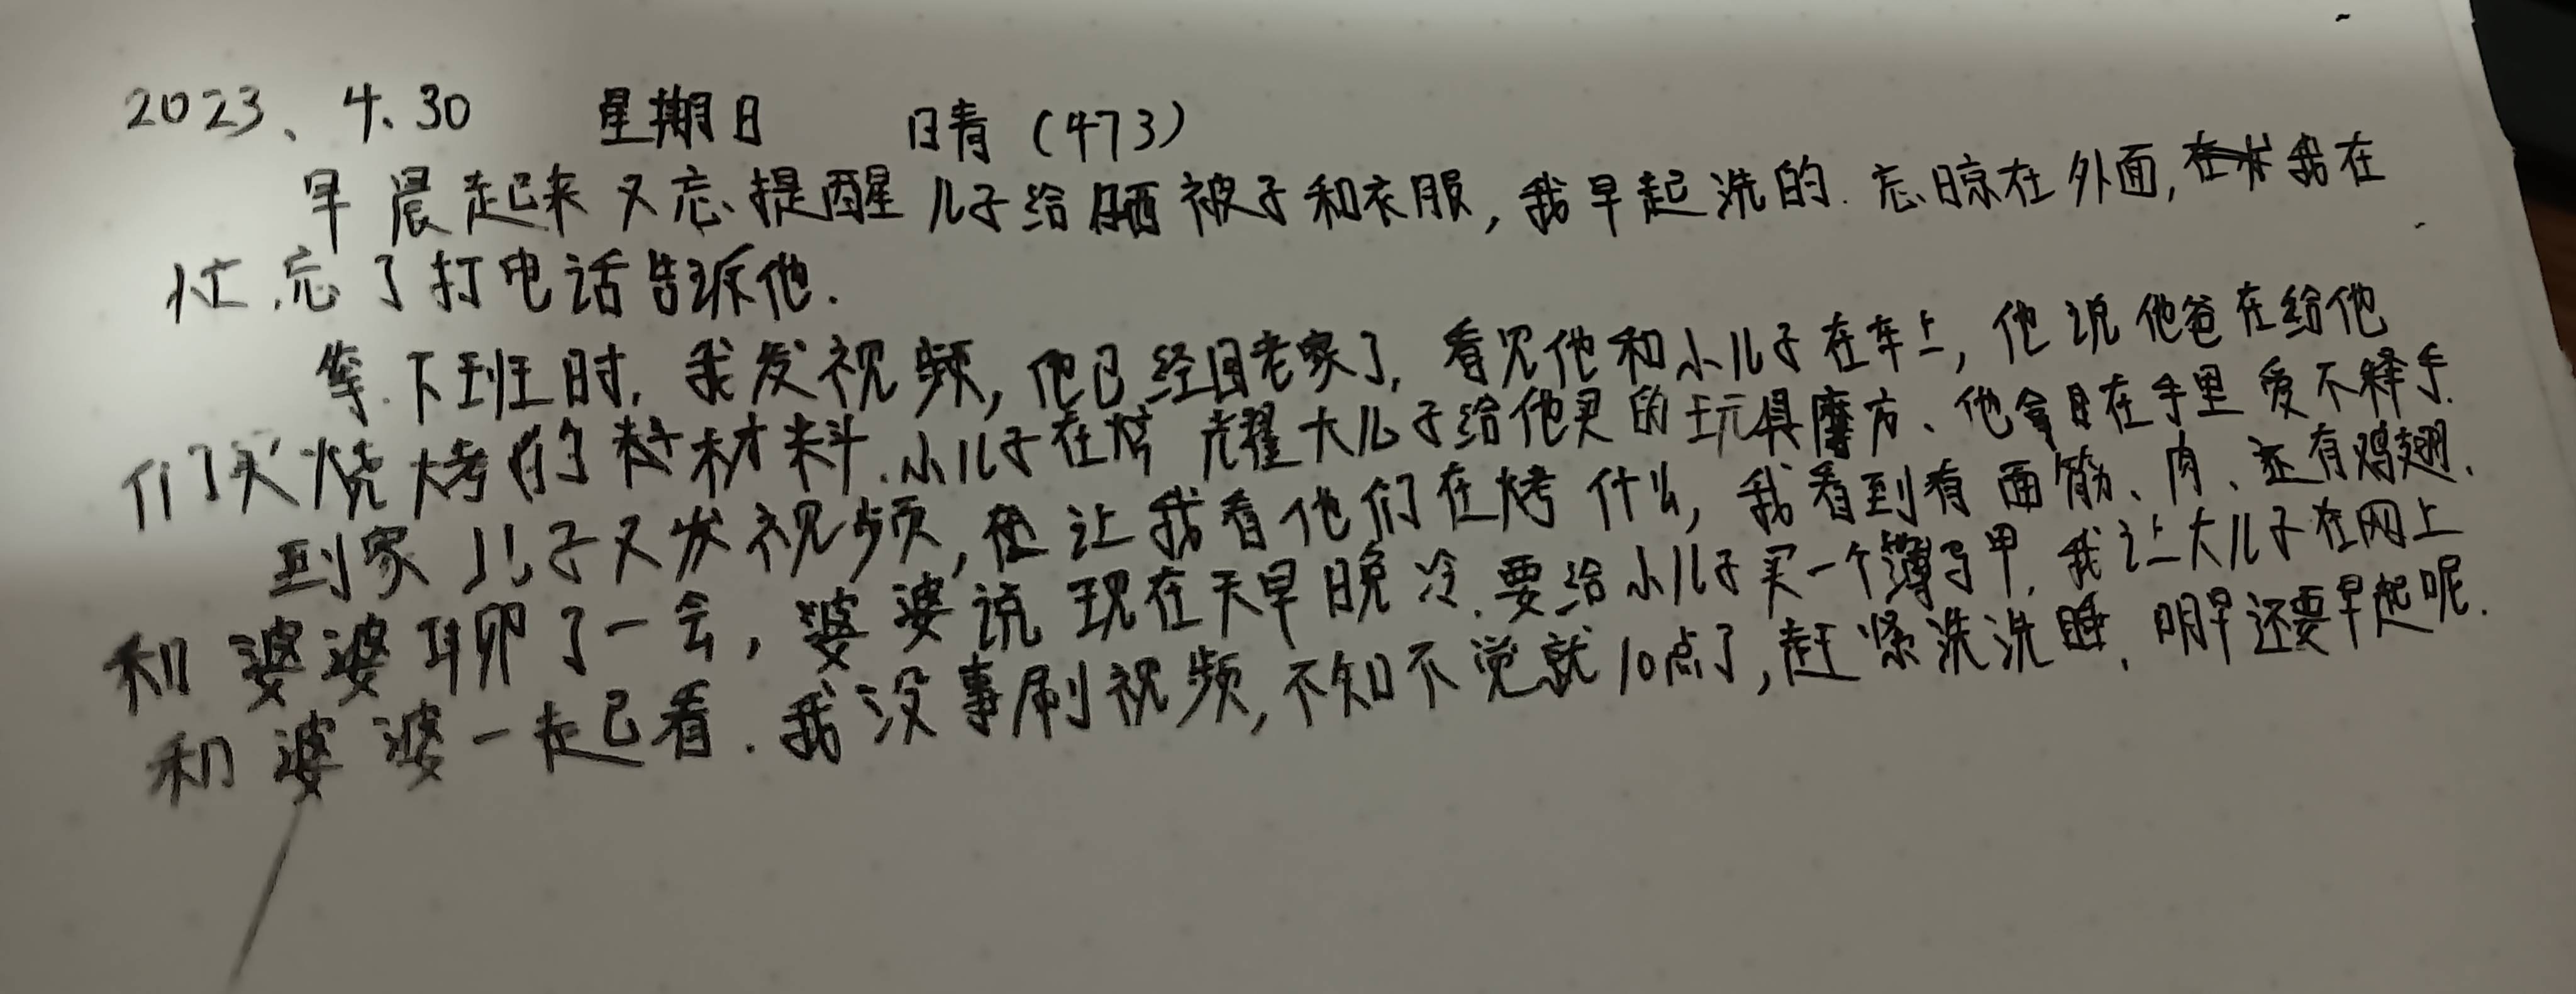 2023、4、30 星期日 晴(473)
早晨起来又忘提醒儿子给晒被子和衣服,我早起洗的.忘晾在外面,我在
忙.忘了打电话告诉他.
等下班时,我发视频,他已经回老家了,看见他和小儿子在车上,他说他爸在给他
们买烧烤的材料.小儿子在炫耀大儿子给他买的玩具魔方、他拿在手里爱不释手.
到家儿子又发视频,他让我看他们在烤什么,我看到有面筋、肉、还有鸡翅.
和婆婆聊了一会,婆婆说现在天早晚冷.要给小儿子买一个薄马甲.我让大儿子在网上
和婆婆一起看.我没事刷视频,不知不觉就10点了,赶紧洗洗睡,明早还要早起呢.